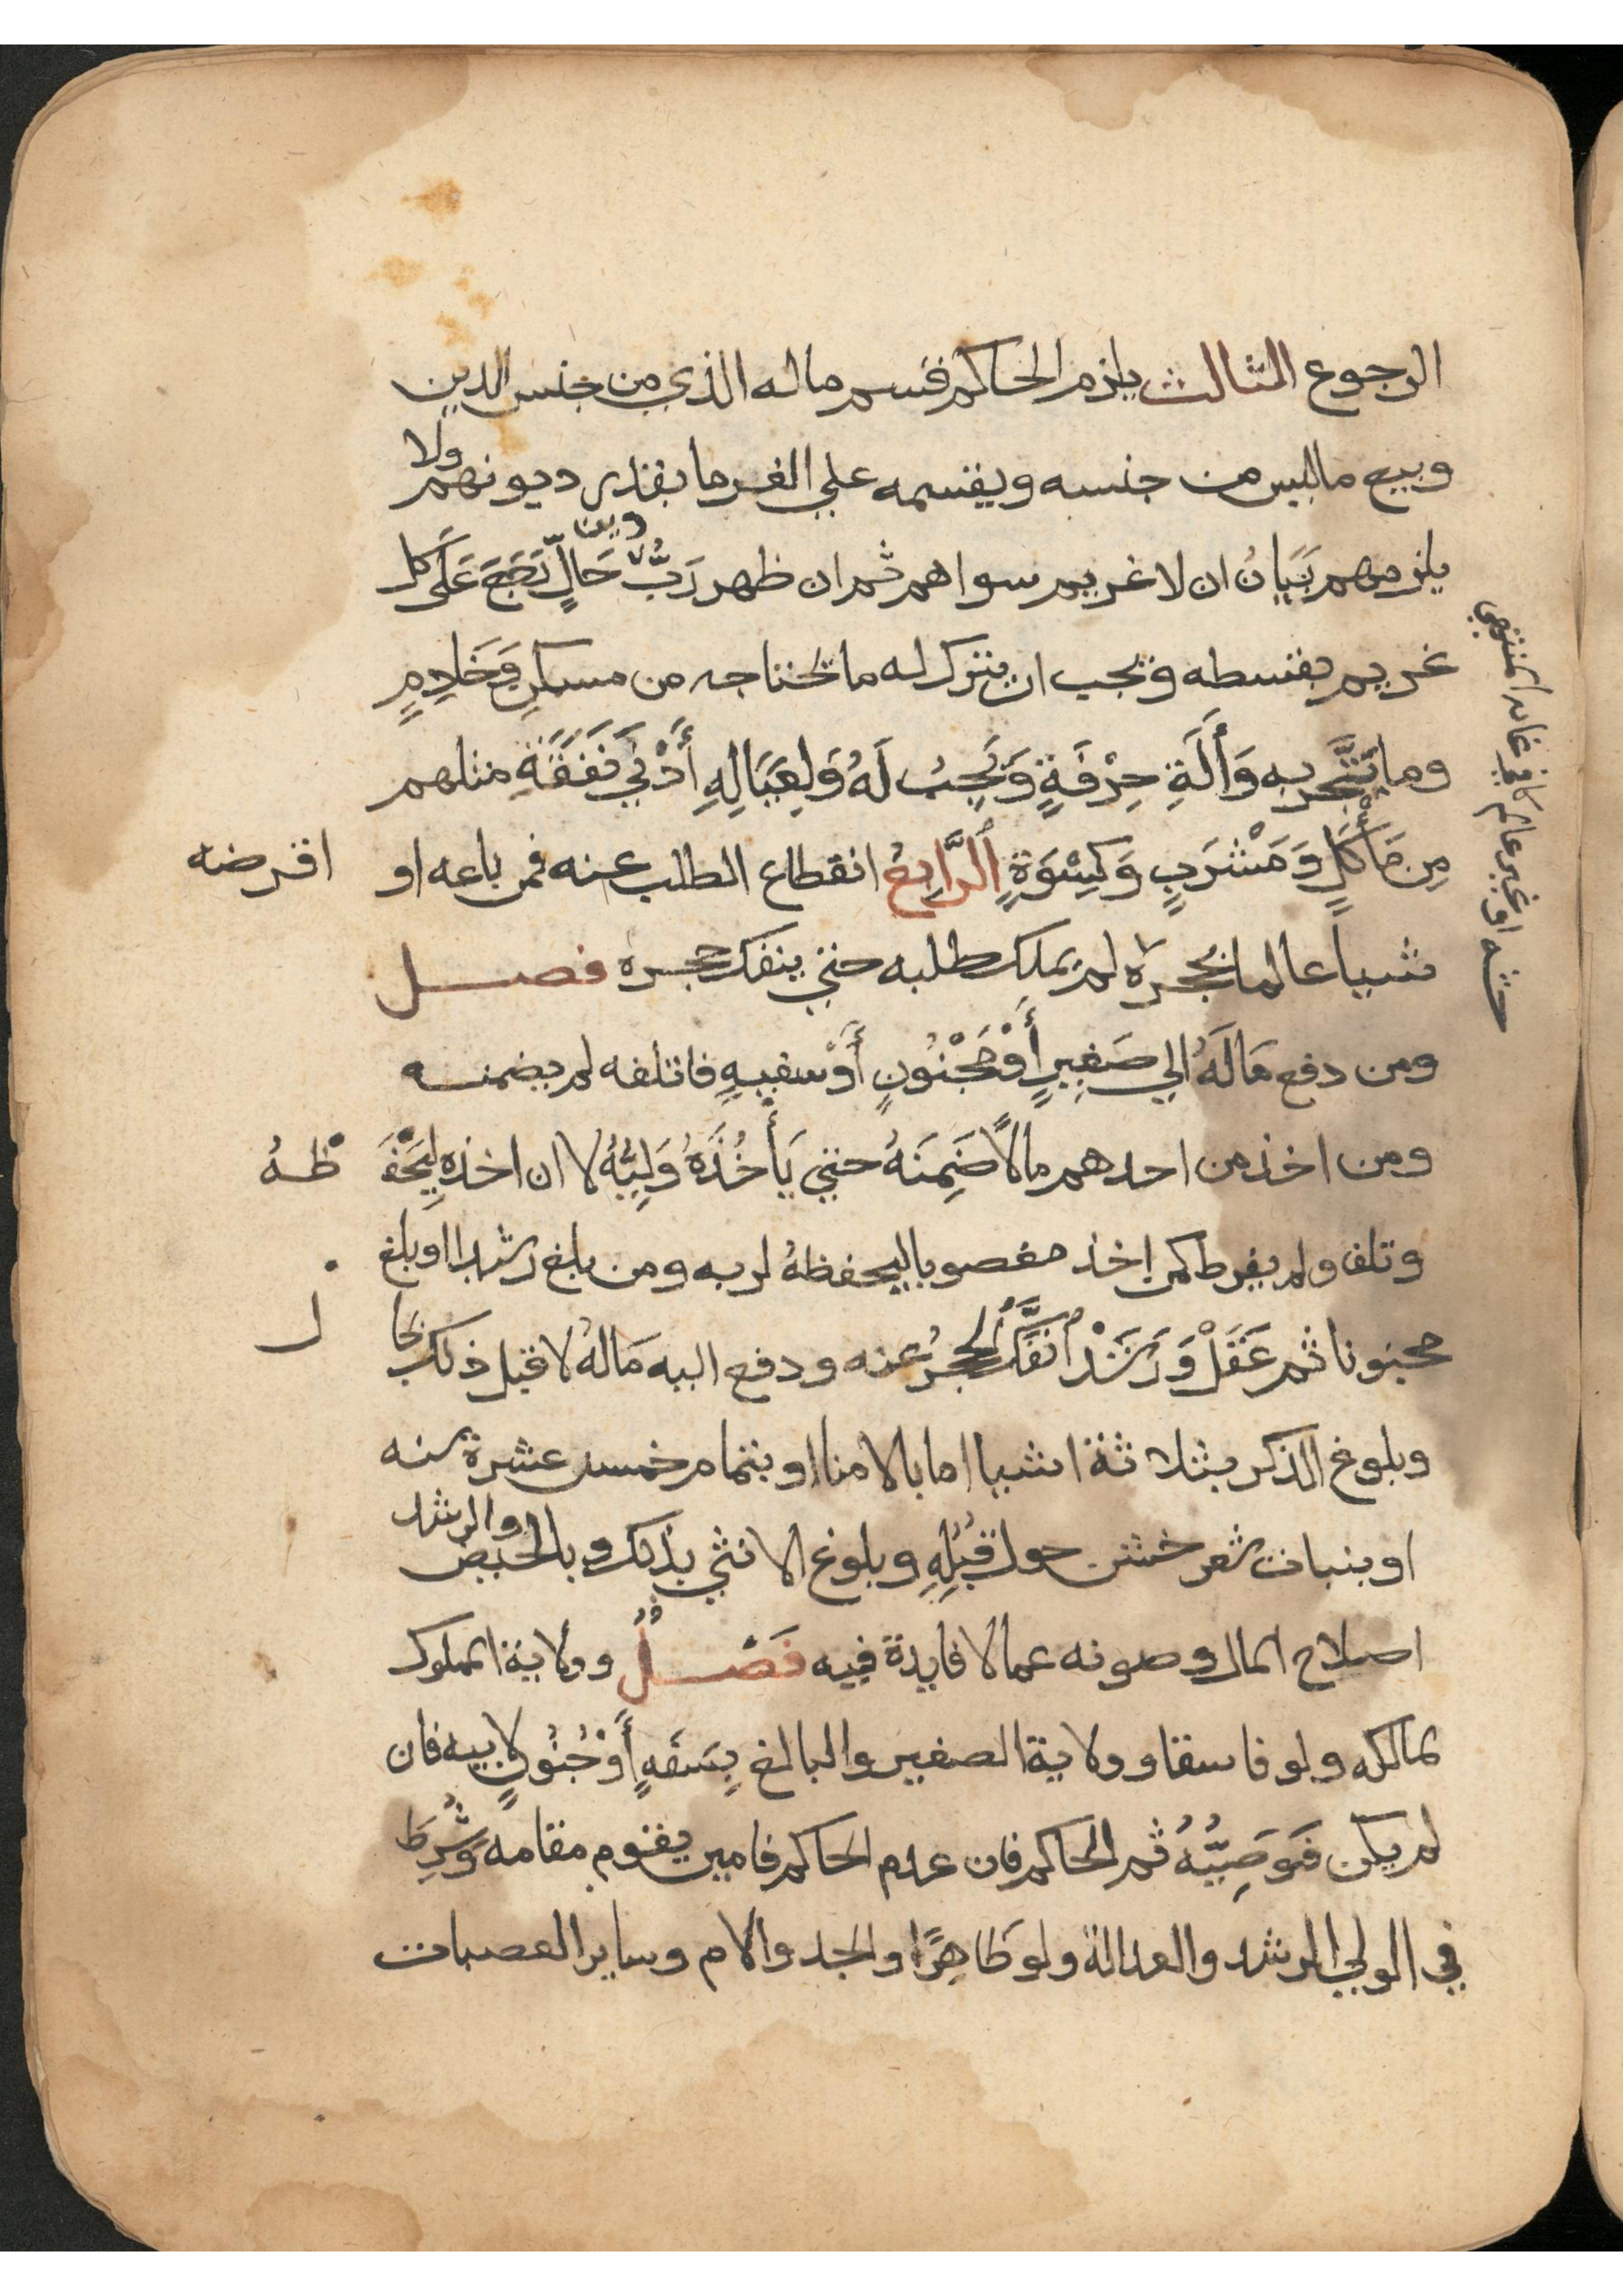 الرجوع الثالث يلزم الحاكم قسم ماله الذي من جنس الدين
وبيع ماليس من جنسه ويقسمه علي الغرما بقدر ديونهم ولا
يلزمهم بَيَانُ ان لا غريم سواهم ثم ان ظهر رَبُّ دين حَالٍّ رَجَعَ عَلَى كل
غريم بقسطه ويجب ان يترك له ما يحتاجه من مسكنٍ وَخَادِمٍ
وما يَتَّجِر به وَأَلَةِ حِرْفَةٍ وَيَجِبُ لَهُ وَلِعِيَالِهِ أَدْنَي نَفَقَةِ مثلهم
مِن مَأْكَلٍ وَمَشْرَبٍ وَكِسْوَةٍ اَلرَّابِعُ انقطاع الطلب عنه فمن باعه او اقرضه
شيأ عالما بحجره لم يملك طلبه حتي ينفك حجره فصل
ومن دفع مَالَهُ الي صَغِيرٍ أَوْ مَجْنُونٍ أَوْ سفيهٍ فاتلفه لم يضمنه
ومن اخذ من احدهم مالًا ضَمِنَهُ حتي يَأْخُذَهُ وَلِيُّهُ لا ان اخذه لِيَحْفَظهُ
وتلف ولم يفرط كمن اخذ مغصوبا ليحفظهُ لربه ومن بلغ رشدا او بلغ
مجنونا ثم عَقَلْ وَرَشَدْ اُنفَكَّ الحجرُ عنه ودفع اليه مَالهُ لا قبل ذلك بحال
وبلوغ الذكر بثلاثة اشيا اما بالامنا او بتمام خمس عشرة سنه
او بنبات شعر خشن حول قُبُلِهِ وبلوغ الانثي بذلك وبالحيض والرشد
اصلاح المال وصونه عما لا فايدة فيه فَصْلُ وولاية المملوك
لمالكه ولو فاسقا وولاية الصغير والبالغ بِسَفَهٍ أَوْ جُنُونٍ لابيه فان
لم يكن فَوَصِيُّهُ ثم الحاكم فان عدم الحاكم فامين يقوم مقامه وَشُرِطَ
في الولي الرشد والعدالة ولو ظَاهِرًا والجد والام وساير العصبات